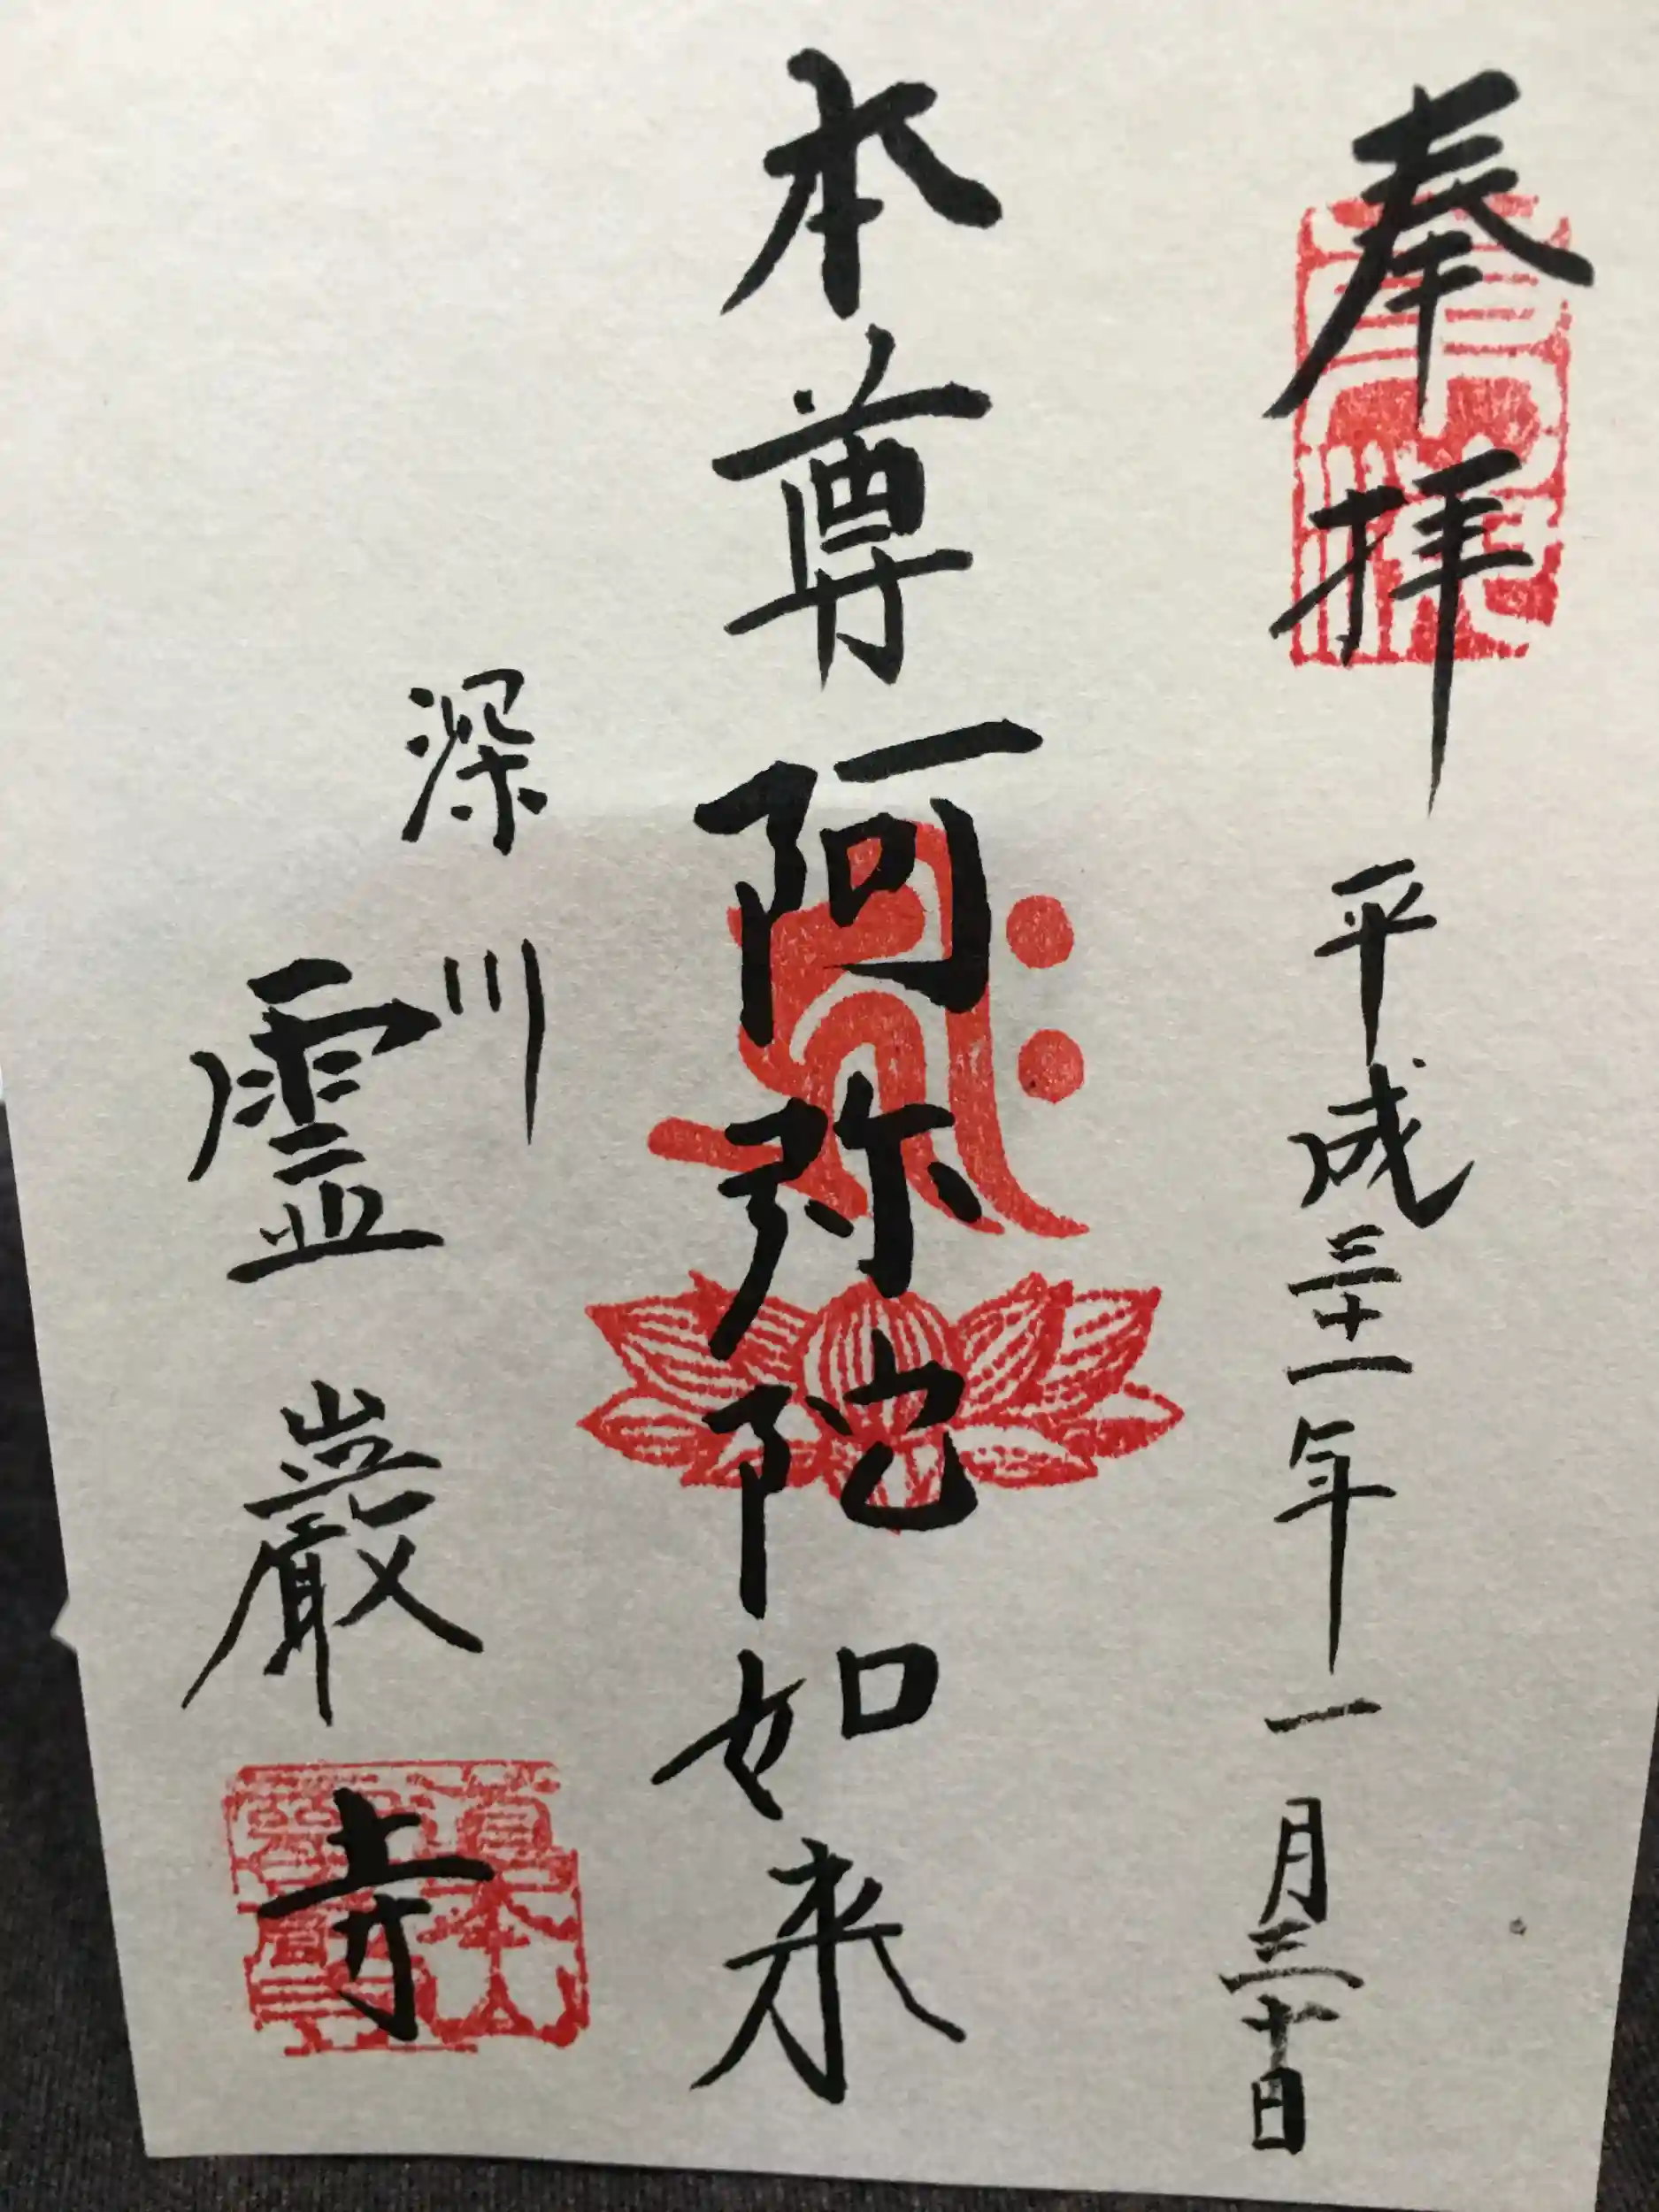 奉拝 平成三十一年一月三十日
本尊阿弥陀如来
深川
霊巌寺